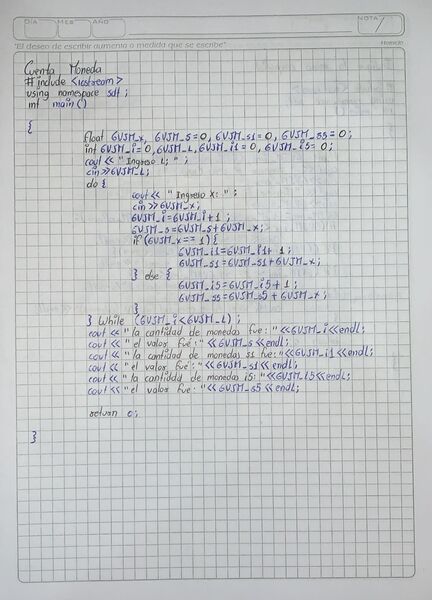 DÍA MES AÑO NOTA
"El deseo de escribir aumenta a medida que se escribe" Horacio
Cuenta Moneda
# include <iostream>
using namespace sdt;
int main()
{
float GVSM_x, GVSM_s=0, GVSM_s1=0, GVSM_s5=0;
int GVSM_i=0, GVSM_L, GVSM_i1=0, GVSM_i5=0;
cout << "Ingreso L; ";
cin >> GVSM_L;
do {
cout << "Ingreso X: ";
cin >> GVSM_x;
GVSM_i=GVSM_i+1;
GVSM_s=GVSM_s+GVSM_x;
if (GVSM_x==1){
GVSM_i1=GVSM_i1+1;
GVSM_s1=GVSM_s1+GVSM_x;
} else {
GVSM_i5=GVSM_i5+1;
GVSM_s5=GVSM_s5+GVSM_x;
}
} While (GVSM_i<GVSM_L);
cout << "la cantidad de monedas fue: "<<GVSM_i<<endl;
cout << "el valor fue: "<<GVSM_s<<endl;
cout << "la cantidad de monedas s1 fue: "<<GVSM_i1<<endl;
cout << "el valor fue: "<<GVSM_s1<<endl;
cout << "la cantidad de monedas i5: "<<GVSM_i5<<endl;
cout << "el valor fue: "<<GVSM_s5<<endl;
return 0;
}